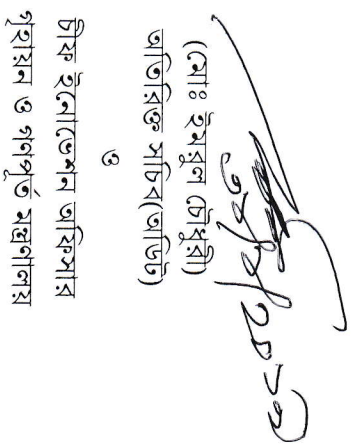 (মোঃ ইমরুল চৌধুরী)
অতিরিক্ত সচিব(অডিট)
ও
চীফ ইনোভেশন অফিসার
গৃহায়ন ও গণপূর্ত মন্ত্রণালয়